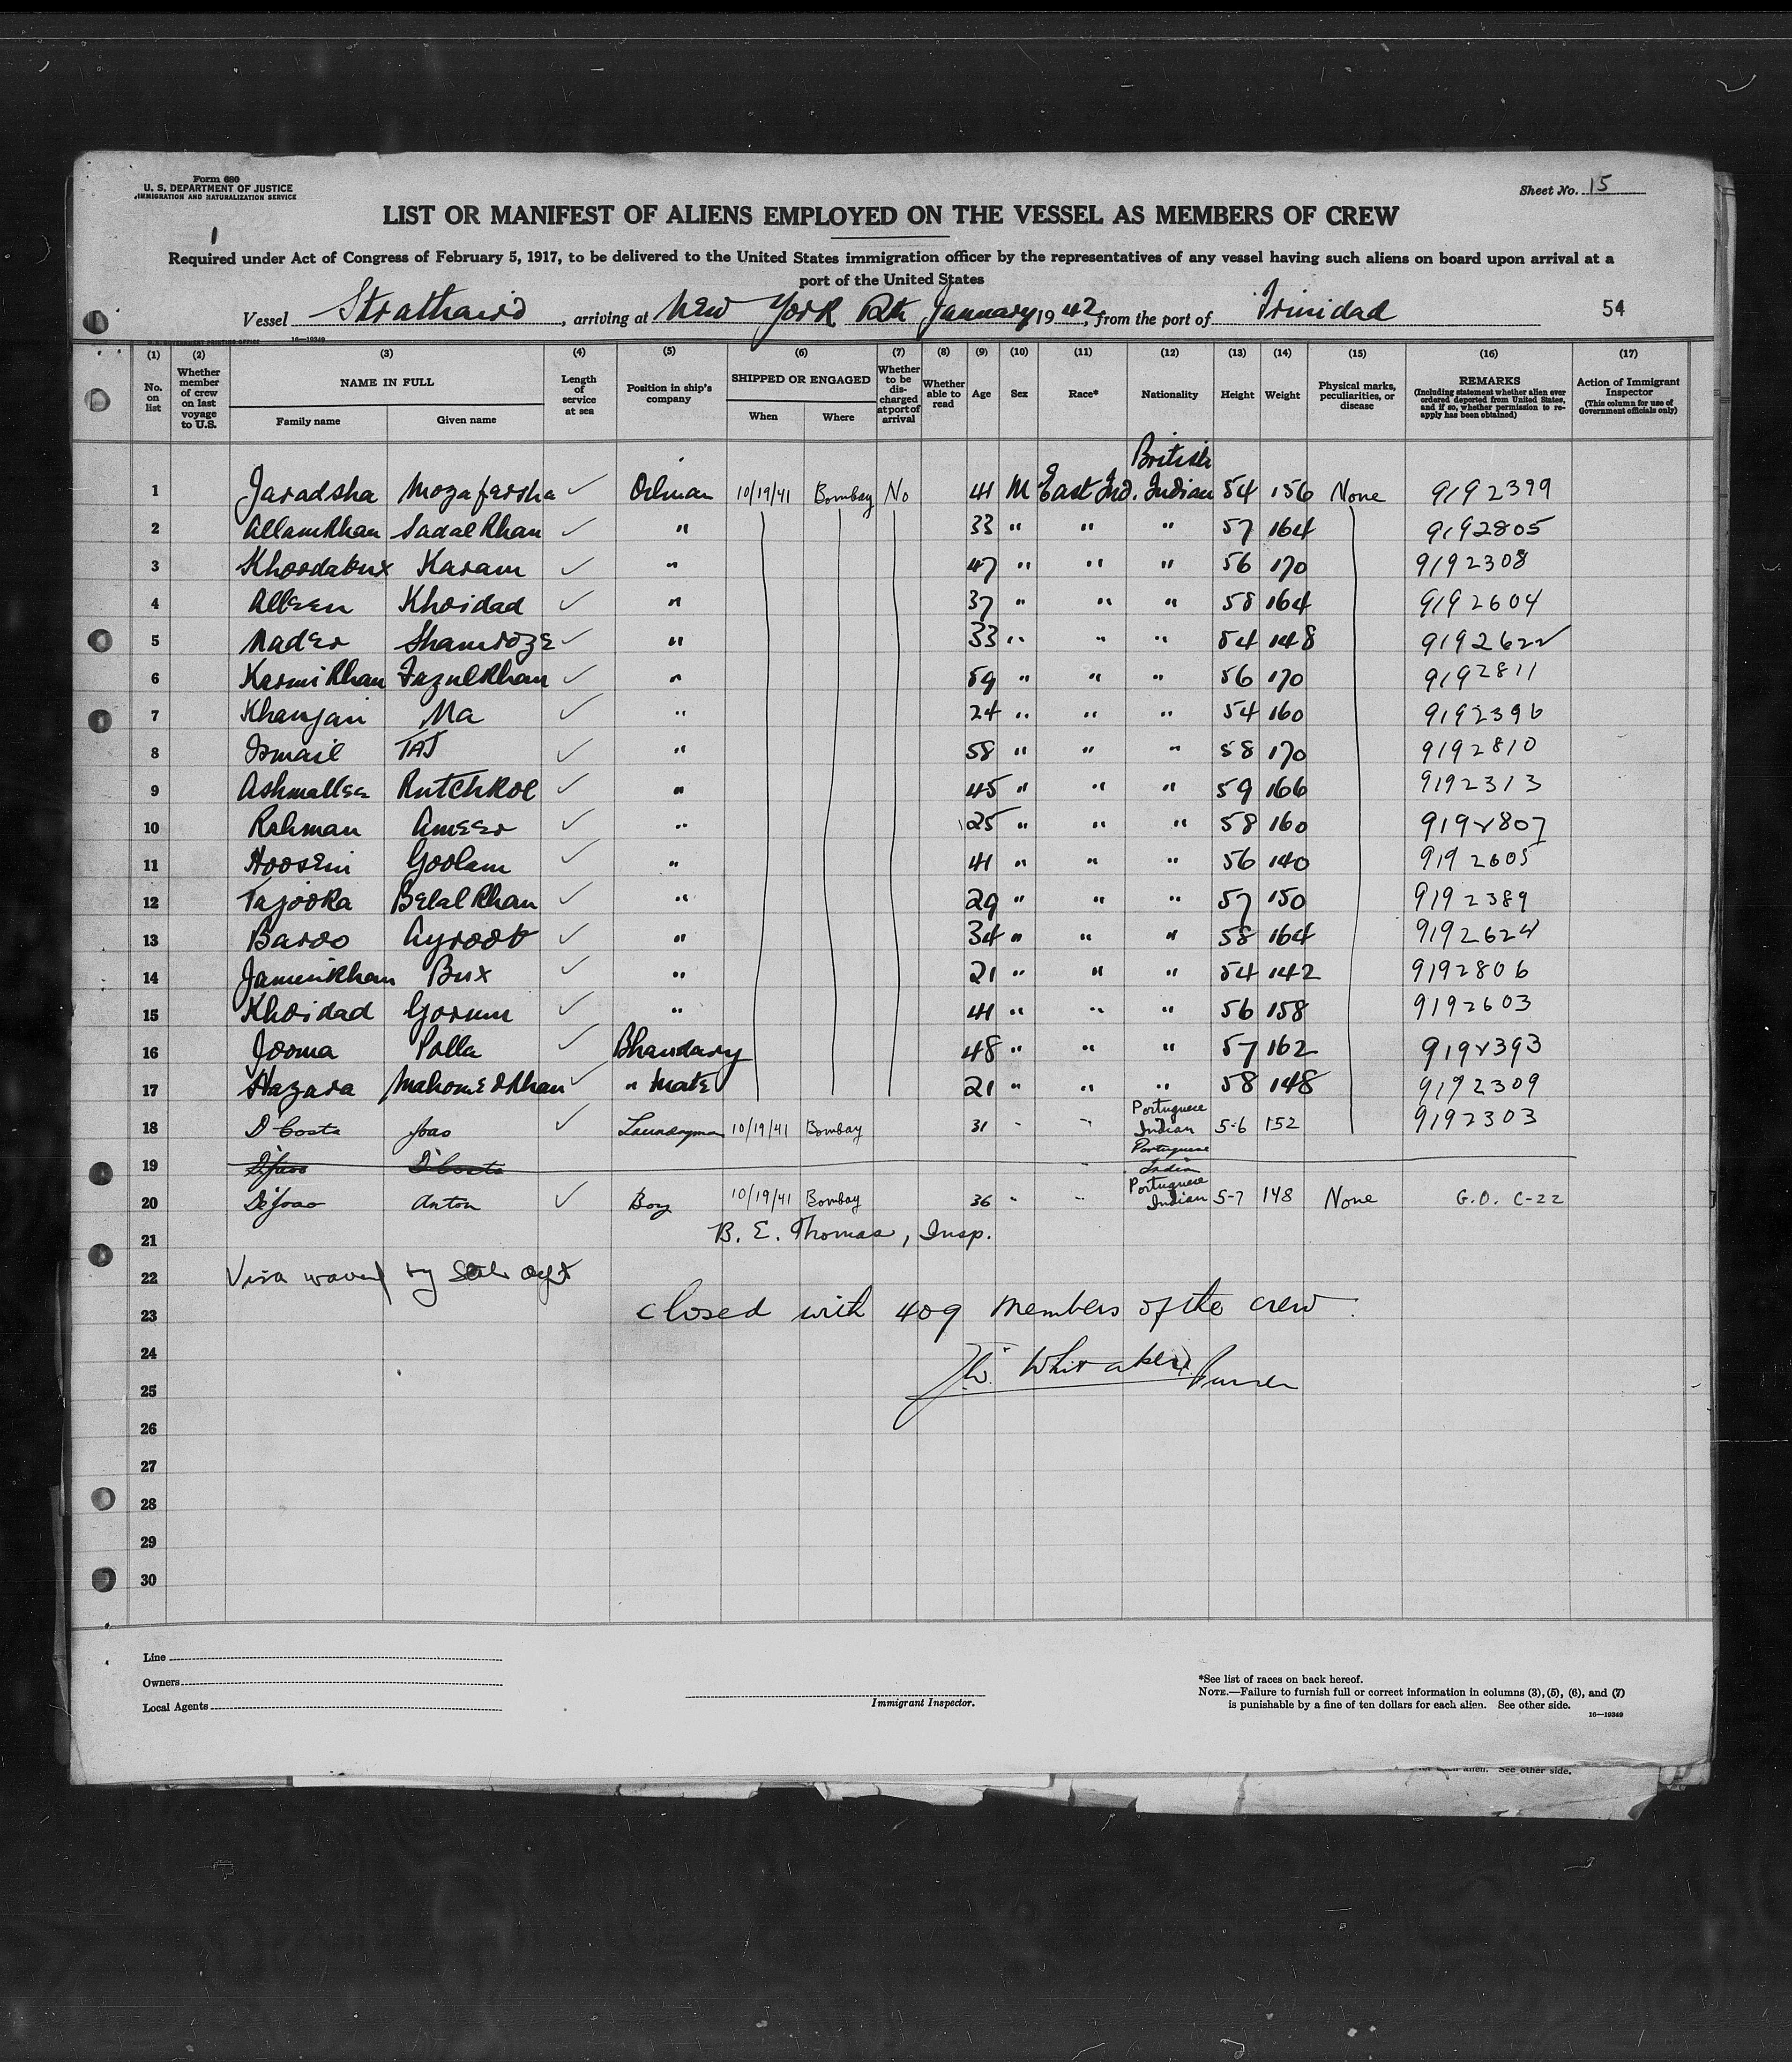 Form 680
U. S. DEPARTMENT OF JUSTICE
IMMIGRATION AND NATURALIZATION SERVICE
Sheet No. 15
LIST OR MANIFEST OF ALIENS EMPLOYED ON THE VESSEL AS MEMBERS OF CREW
Required under Act of Congress of February 5, 1917, to be delivered to the United States immigration officer by the representatives of any vessel having such aliens on board upon arrival at a
port of the United States
Vessel Strathaird, arriving at New York 12th January 1942, from the port of Trinidad 54
16—19349
(1) (2) (3) (4) (5) (6) (7) (8) (9) (10) (11) (12) (13) (14) (15) (16) (17)
No. on list
Whether member of crew on last voyage to U.S.
NAME IN FULL
Family name Given name
Length of service at sea
Position in ship's company
SHIPPED OR ENGAGED
When Where
Whether to be discharged at port of arrival
Whether able to read
Age
Sex
Race*
Nationality
Height
Weight
Physical marks, peculiarities, or disease
REMARKS
(Including statement whether alien ever ordered deported from United States, and if so, whether permission to reapply has been obtained)
Action of Immigrant Inspector
(This column for use of Government officials only)
British
1 Jaradsha Mozafersha ✓ Oilman 10/19/41 Bombay No 41 M East Ind. Indian 54 156 None 9192399
2 Allamkhan Sadalkhan ✓ " 33 " " " 57 164 9192805
3 Khoodabux Karam ✓ " 47 " " " 56 170 9192308
4 Alleen Khoidad ✓ " 37 " " " 58 164 9192604
5 Nader Shamroze ✓ " 33 " " " 54 148 9192622
6 Karmikhan Fazulkhan ✓ " 59 " " " 56 170 9192811
7 Khanjan Ma ✓ " 24 " " " 54 160 9192396
8 Ismail TAJ ✓ " 58 " " " 58 170 9192810
9 Ashmallee Rutchkoe ✓ " 45 " " " 59 166 9192313
10 Rahman Ameer ✓ " 25 " " " 58 160 9192807
11 Hoosein Goolam ✓ " 41 " " " 56 140 9192605
12 Tajooka Belalkhan ✓ " 29 " " " 57 150 9192389
13 Baroo Ayroob ✓ " 34 " " " 58 164 9192624
14 Jamunkhan Bux ✓ " 21 " " " 54 142 9192806
15 Khoidad Gorum ✓ " 41 " " " 56 158 9192603
16 Jooma Polla ✓ Bhandary 48 " " " 57 162 9192393
17 Hazara Mahomedkhan ✓ " Mate 21 " " " 58 148 9192309
18 D'Costa Joao ✓ Laundryman 10/19/41 Bombay 31 " " Portuguese Indian 5-6 152 9192303
19 D'Joao D'Costa " Portuguese Indian
20 De'Joao Anton ✓ Boy 10/19/41 Bombay 36 " " Portuguese Indian 5-7 148 None G.O. C-22
21 B. E. Thomas, Insp.
22 Visa waved by State Dept
23 Closed with 409 members of the crew.
24 Whitaker Purser
25
26
27
28
29
30
Line
Owners
Local Agents
Immigrant Inspector.
*See list of races on back hereof.
NOTE.—Failure to furnish full or correct information in columns (3), (5), (6), and (7)
is punishable by a fine of ten dollars for each alien. See other side.
16—19349
alien. See other side.